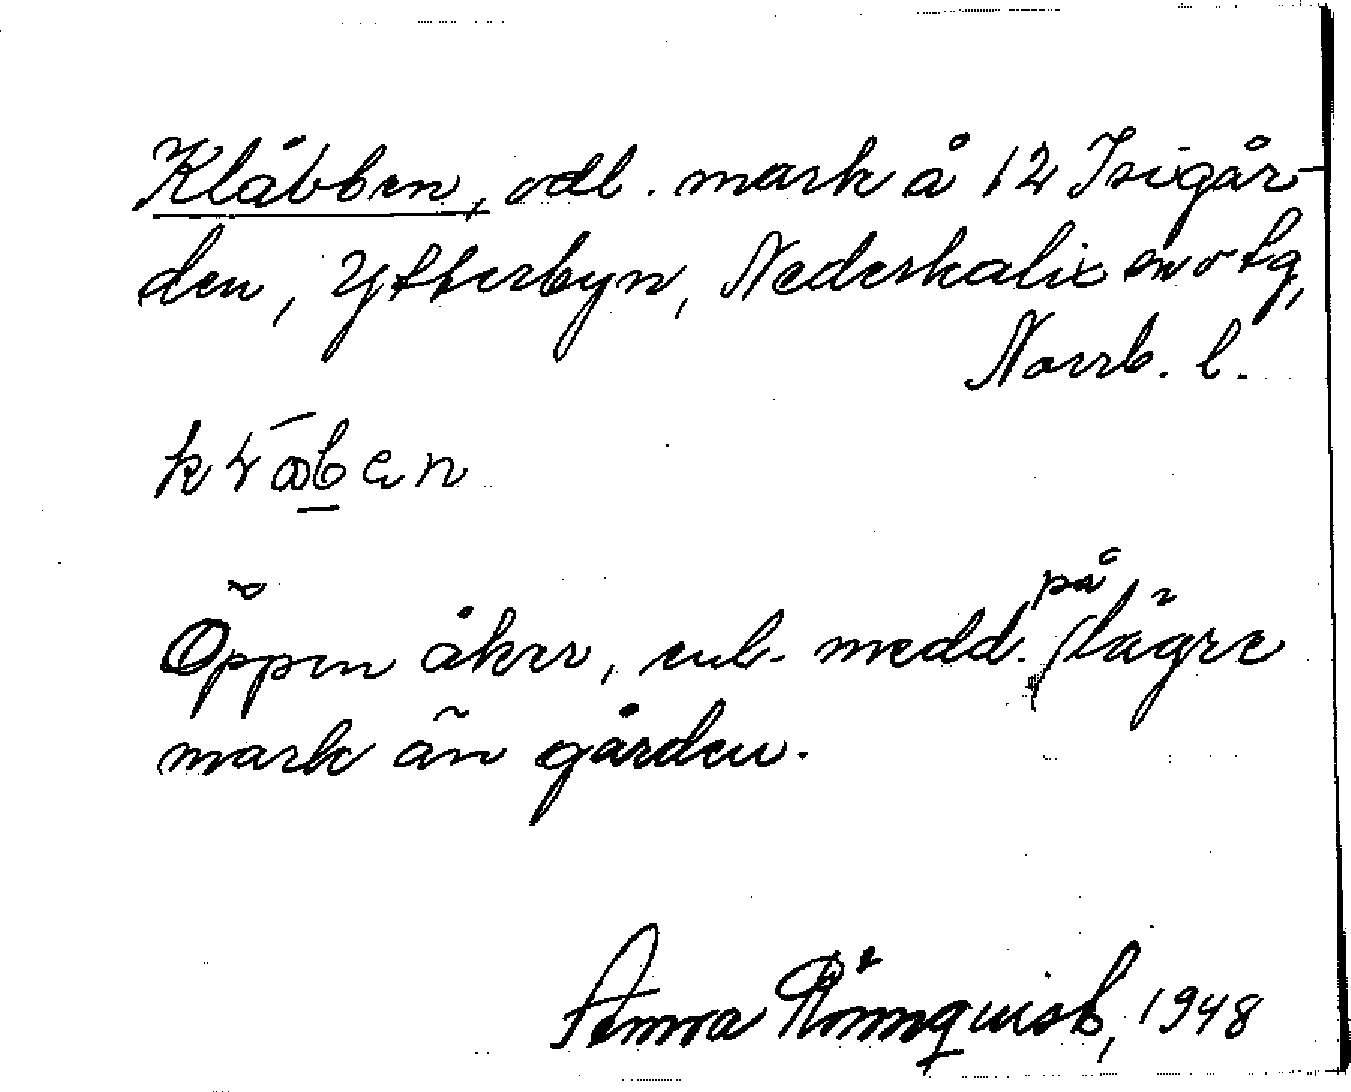 Kläbben, odl. mark å 12 Isigår-
den, Ytterbyn, Nederkalix sn o tg,
Norrb. l.
Öppen åker, enl. medd. på lägre
mark än gården.
Anna Rönnquist, 1948